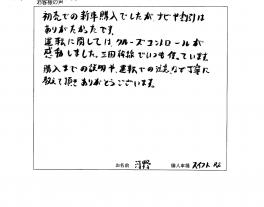 お客様の声
初売での新車購入でしたがナビや割引は
ありがたかったです。
運転に関してはクルーズコントロールが
感動しました。三田幹線でいつも使っています。
購入までの説明や、運転での注意など丁寧に
教えて頂きありがとうございます。
お名前 河野 購入車種 スイフト RS